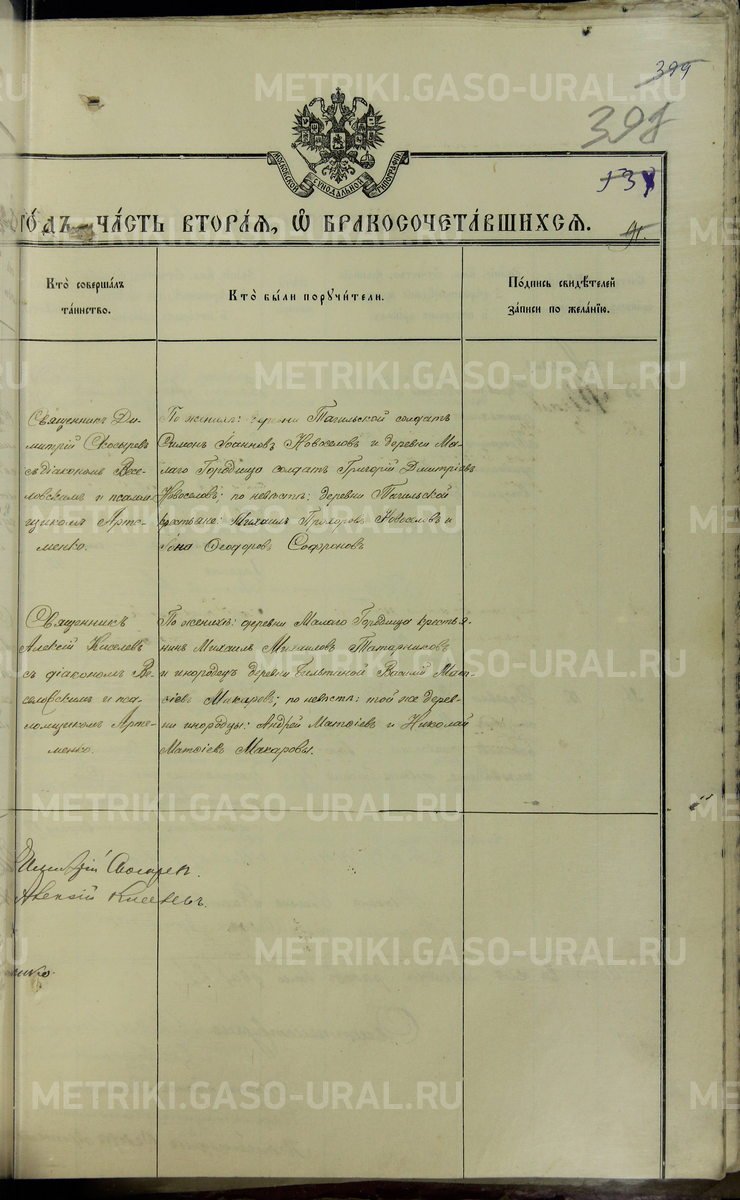 399
398
МОСКОВСКОЙ СѴНОДАЛЬНОЙ ТИПОГРАФІИ
ГО́ДЪ ЧА́СТЬ ВТОРА́Я, Ѡ҆ БРАКОСОЧЕТА́ВШИХСЯ.
Кто̀ соверша́лъ
та́инство.
Кто̀ бы́ли порꙋчи́тели.
По́дпись свидѣ́телей
за́писи по жела́нїю.
Священникъ Ди-
митрій Скосыревъ
съ діакономъ Весе-
ловскимъ и псалом-
щикомъ Арте-
менко.
По женихѣ: деревни Тагильской солдатъ
Симонъ Іоанновъ Новоселовъ и деревни Ма-
лаго Городища солдатъ Григорій Димитріевъ
Новоселовъ; по невѣстѣ: деревни Тагильской
крестьяне: Михаилъ Прохоровъ Новоселовъ и
Ѳеодоровъ Софроновъ
Священникъ
Алексій Киселевъ
съ діакономъ Ве-
селовскимъ и пса-
ломщикомъ Арте-
менко.
По женихѣ: деревни Малаго Городища кресть-
янинъ Михаилъ Михаиловъ Татарниковъ
и инородецъ деревни Василій Мат-
ѳіевъ Макаровъ; по невѣстѣ: той же дерев-
ни инородцы: Андрей Матѳіевъ и Николай
Матѳіевъ Макаровы.
Димитрій Скосыревъ.
Алексій Киселевъ.
енко.
METRIKI.GASO-URAL.RU